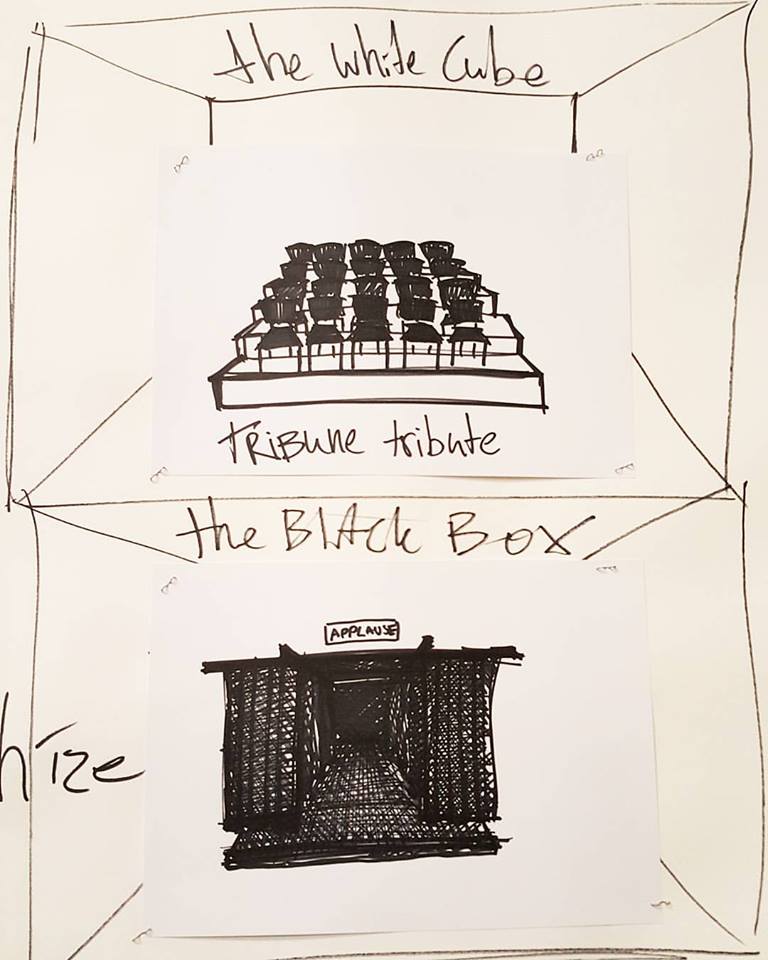 the white Cube
TRiBune tribute
the BlAck Box
APPLAUSE
hize